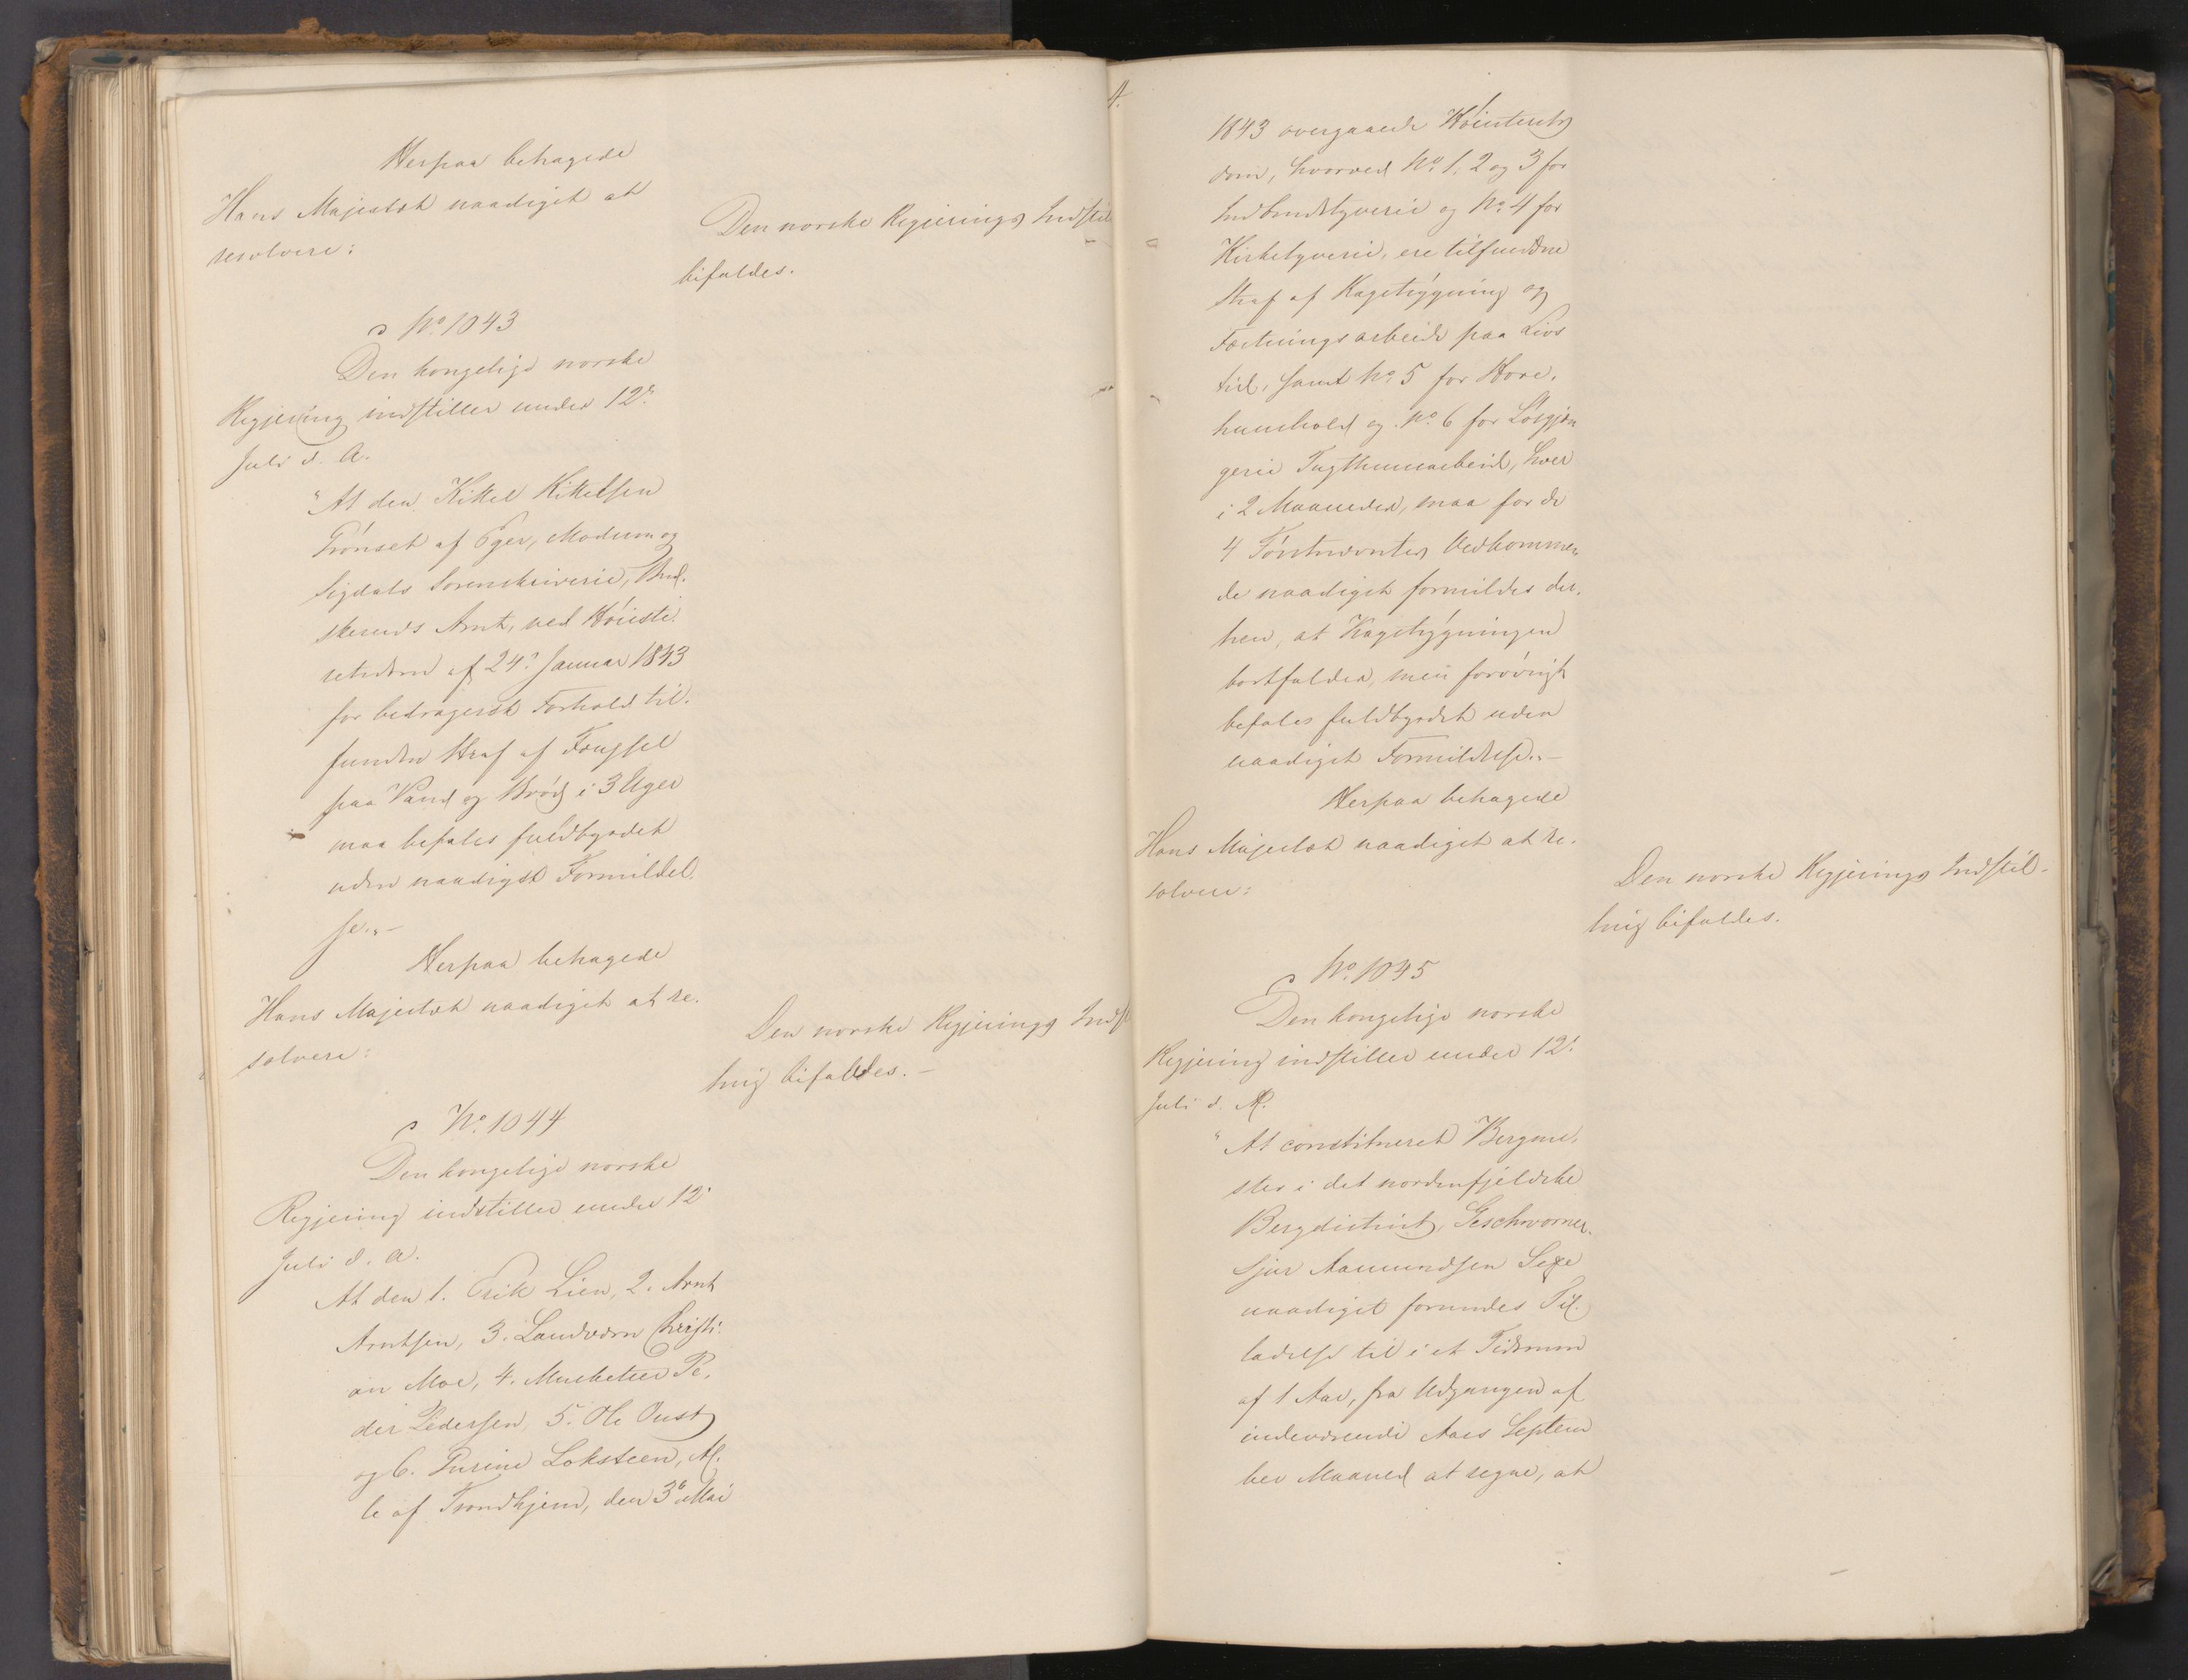 Herpaa behagede
Hans Majestæt naadigst at
resolvere:
Den norske Regjerings Indstil
bifaldes.
No. 1043
Den kongelige norske
Regjering indstiller under 12te
Juli d. A.
"At den Kittel Kittelsen
Grönset af Eger, Modum og
Sigdals Sorenskriverie, Bud-
skeruds Amt, ved Höieste-
retsdom af 24de Januar 1843
for bedragersk Forhold til-
funden Straf af Fængsel
paa Vand og Bröd i 3 Uger
maa befales fuldbyrdet
uden naadigst Formildel-
se."-
Herpaa behagede
Hans Majestæt naadigst at re-
solvere:
Den norske Regjerings Indst
ling bifaldes.-
No. 1044
Den kongelige norske
Regjering indstiller under 12te
Juli d. A.
At den 1. Erik Lien, 2. Arnt
Arntsen, 3. Landværn Christi-
an Moe, 4. Musketeer Pe-
der Pedersen, 5. Ole Oust
og 6. Gurine Loksteen, Al-
le af Trondhjem, den 3die Mai
1843 overgaaede Höiesterets
dom, hvorved No. 1, 2 og 3 for
Indbrudstyverie og No. 4 for
Kirketyverie, ere tilfundne
Straf af Kagstrygning og
Fæstningsarbeide paa Livs
tid, samt No. 5 for Hore-
huushold og No. 6 for Lösgjæn
gerie Tugthuusarbeid, hver
i 2 Maaneder, maa for de
4 Förstnævntes Vedkommen
de naadigst formildes der-
hen, at Kagstrygningen
bortfalder, men forövrigt
befales fuldbyrdet uden
naadigst Formildelse."-
Herpaa behagede
Hans Majestæt naadigst at re-
solvere:
Den norske Regjerings Indstil-
ling bifaldes.
No. 1045
Den kongelige norske
Regjering indstiller under 12te
Juli d. A.
"At constitueret Bergme-
ster i det nordenfjeldske
Bergdistrict, Geschworner
Sjur Aamundsen Sexe
naadigst forundes Til-
ladelse til i et Tidsrum
af 1 Aar, fra Udgangen af
indeværende Aars Septem
ber Maaned at regne, at